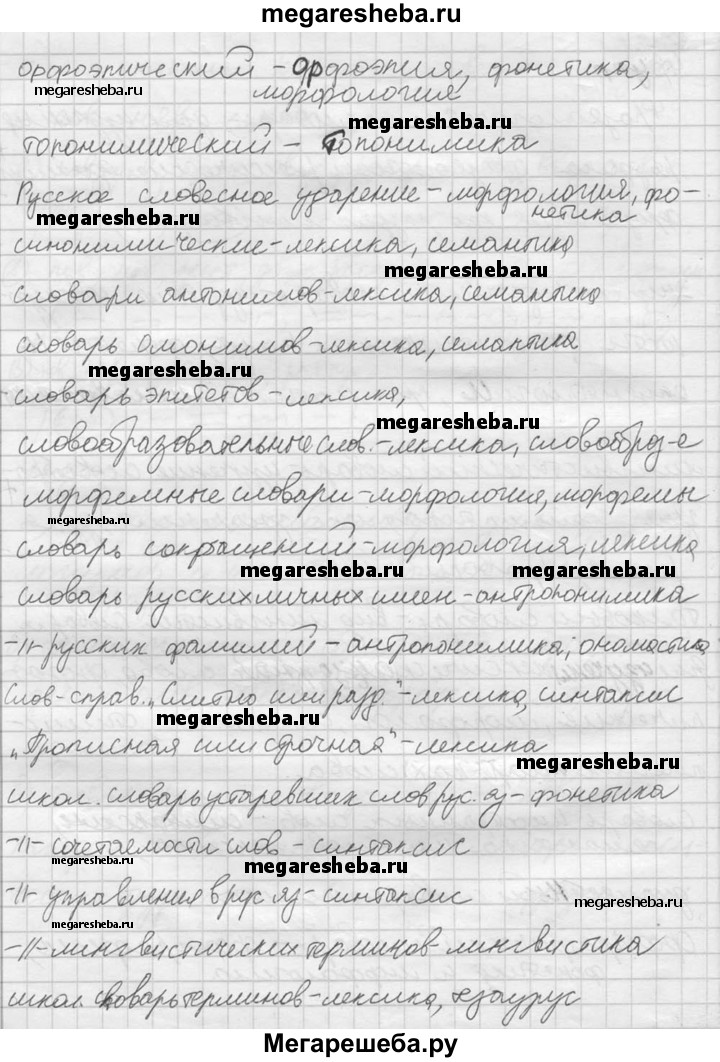 megaresheba.ru
орфоэпический – орфоэпия, фонетика,
megaresheba.ru
морфология
megaresheba.ru
топонимический – топонимика
Русское словесное ударение – морфология, фо-
нетика
megaresheba.ru
синонимические – лексика, семантика
megaresheba.ru
словари антонимов – лексика, семантика
словарь омонимов – лексика, семантика
megaresheba.ru
словарь эпитетов – лексика,
megaresheba.ru
словообразовательные слов. – лексика, словообраз-е
морфемные словари – морфология, морфемы
megaresheba.ru
словарь сокращений – морфология, лексика
megaresheba.ru megaresheba.ru
словарь русских личных имен – антропонимика
-//- русских фамилий – антропонимика, ономастика
Слов-справ. „Слитно или разд." – лексика, синтаксис
megaresheba.ru
„Прописная или строчная" – лексика
megaresheba.ru
школ. словарь устаревших слов рус. яз – фонетика
-//- сочетаемости слов – синтаксис
megaresheba.ru megaresheba.ru
-//- управления в рус яз – синтаксис
megaresheba.ru
megaresheba.ru
-//- лингвистических терминов – лингвистика
школ. словарь терминов – лексика,
Мегарешеба.ру